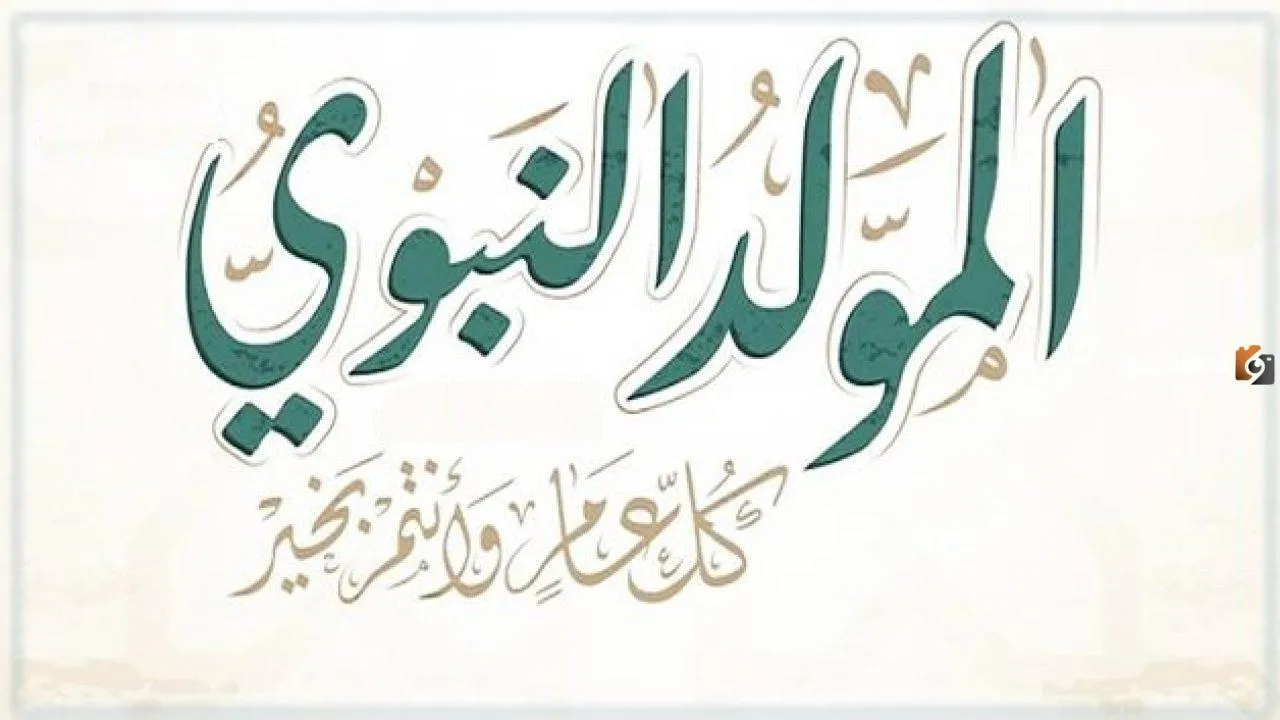 المَوَّلدُ النَبويُّ
كُلّ عَامٍ وَأنتمْ بَخيرْ